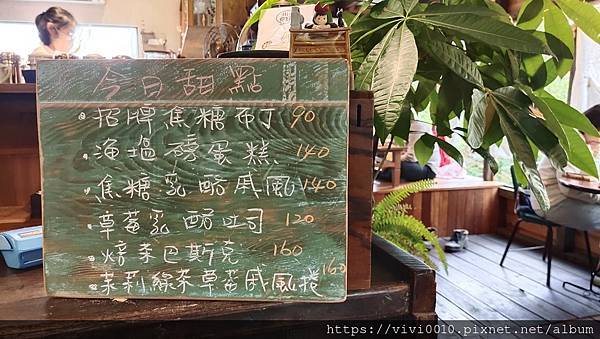 今日甜點
招牌焦糖布丁 90
海塩磅蛋糕 140
焦糖乳酪戚風 140
草莓乳酪吐司 120
焙茶巴斯克 160
茉莉綠茶草莓戚風捲 160
https://vivi0010.pixnet.net/album